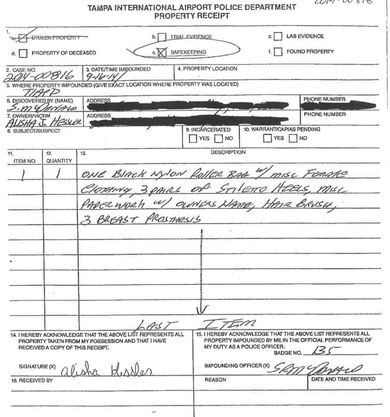 2014-00816
TAMPA INTERNATIONAL AIRPORT POLICE DEPARTMENT
PROPERTY RECEIPT
a. STOLEN PROPERTY b. TRIAL EVIDENCE c. LAB EVIDENCE
d. PROPERTY OF DECEASED e. SAFEKEEPING f. FOUND PROPERTY
2. CASE NO. 3. DATE/TIME IMPOUNDED 4. PROPERTY LOCATION
2014-00816 9-16-14
5. WHERE PROPERTY IMPOUNDED (GIVE EXACT LOCATION WHERE PROPERTY WAS LOCATED)
TIAPD
6. DISCOVERED BY (NAME) ADDRESS PHONE NUMBER
7. OWNER/VICTIM ADDRESS PHONE NUMBER
ALISHA J. HESSLER
8. SUBJECT/SUSPECT 9. INCARCERATED 10. WARRANT/CAPIAS PENDING
YES NO YES NO
11. 12. 13. DESCRIPTION
ITEM NO. QUANTITY
1 1 ONE BLACK NYLON ROLLER BAG W/ MISC FEMALE
CLOTHING, 3 PAIRS OF STILETO HEELS, MISC
PAPERWORK W/ OWNERS NAME, HAIR BRUSH,
3 BREAST PROSTHESIS
LAST ITEM
14. I HEREBY ACKNOWLEDGE THAT THE ABOVE LIST REPRESENTS ALL PROPERTY TAKEN FROM MY POSSESSION AND THAT I HAVE RECEIVED A COPY OF THIS RECEIPT.
15. I HEREBY ACKNOWLEDGE THAT THE ABOVE LIST REPRESENTS ALL PROPERTY IMPOUNDED BY ME IN THE OFFICIAL PERFORMANCE OF MY DUTY AS A POLICE OFFICER.
BADGE NO. 135
SIGNATURE (X) Alisha Hessler IMPOUNDING OFFICER (X)
16. RECEIVED BY REASON DATE AND TIME RECEIVED